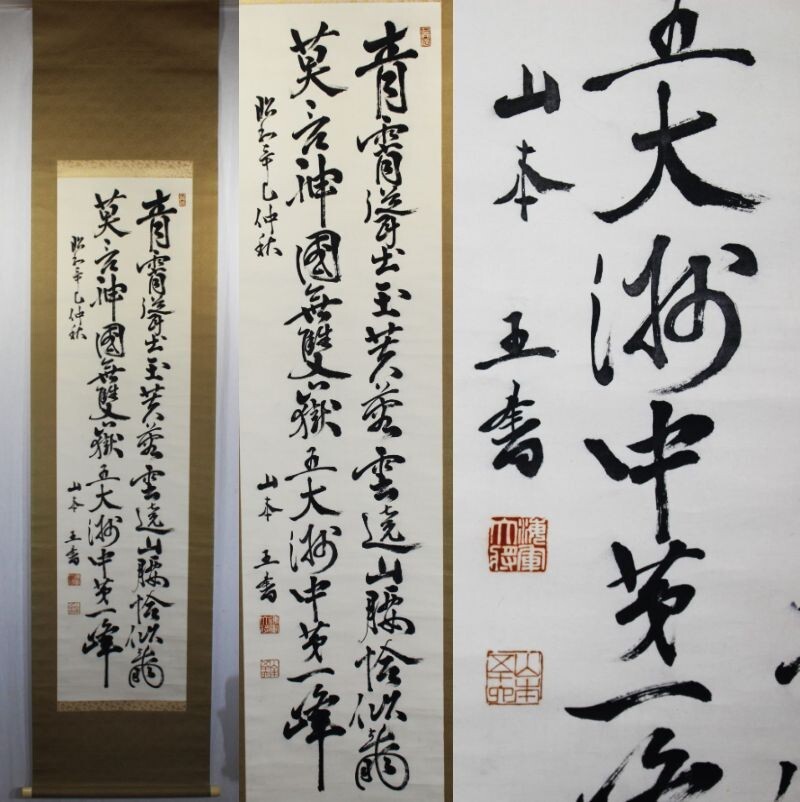 青霄聳出玉芙蓉雲遶山腰恰似龍
莫言神國無雙嶽五大洲中第一峰
昭和辛巳仲秋
山本 五書
青霄聳出玉芙蓉雲遶山腰恰似龍
莫言神國無雙嶽五大洲中第一峰
昭和辛巳仲秋
山本 五書
五大洲中第一峰
山本 五書
海軍大將
山本五十六